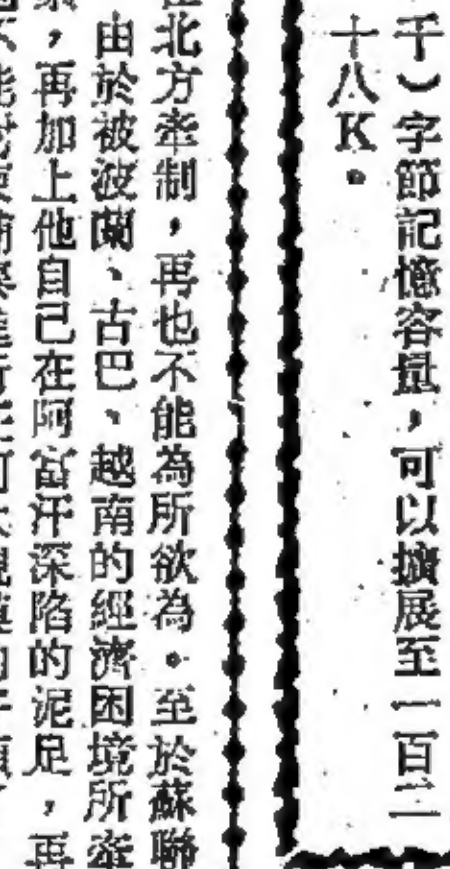 千）字節記憶容量，可以擴展至一百二
十八K。
北方牽制，再也不能為所欲為。至於蘇聯
由於被波蘭、古巴、越南的經濟困境所牽
，再加上他自己在阿富汗深陷的泥足，再